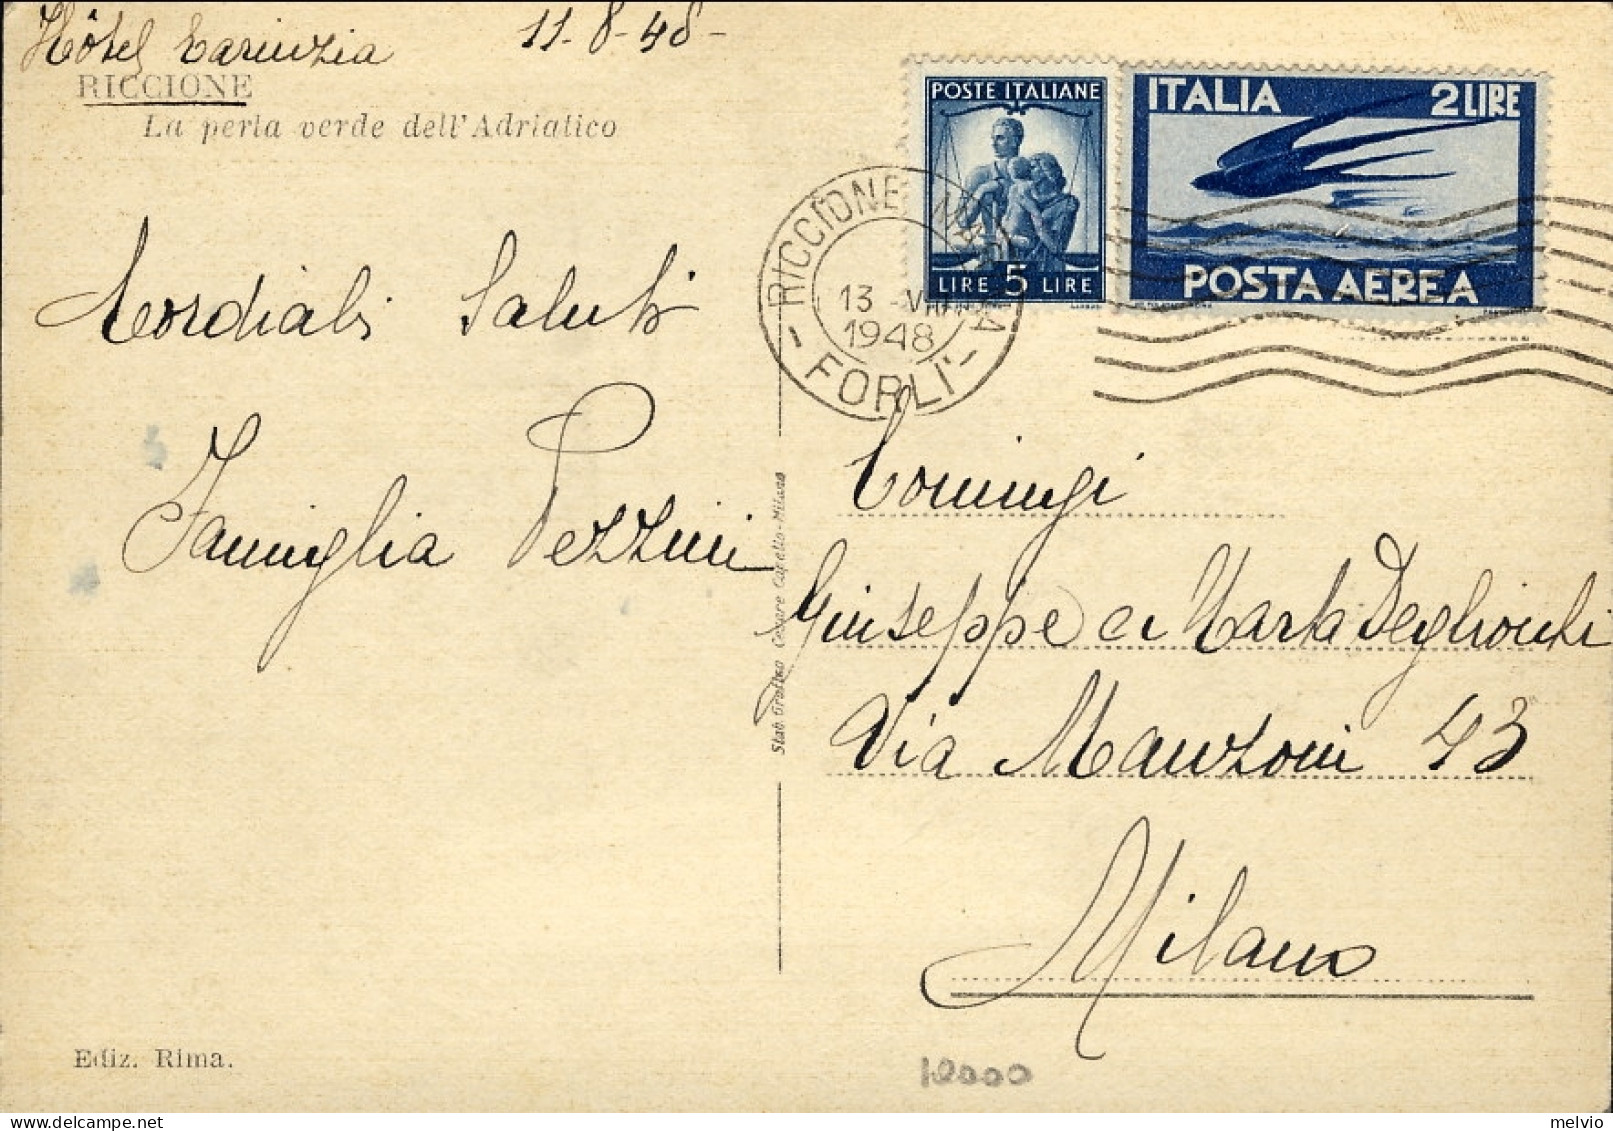 Hôtel Carinzia 11-8-48-
RICCIONE
La perla verde dell'Adriatico
Cordiali Saluti
Famiglia Pezzini
Ediz. Rima.
Stab. Grafico Cesare Capello-Milano
POSTE ITALIANE
LIRE 5 LIRE
ITALIA 2 LIRE
POSTA AEREA
RICCIONE MARINA
13 -VIII
1948
- FORLI' -
Coniugi
Giuseppe e Marta
Via Manzoni 43
Milano
10000
melvio